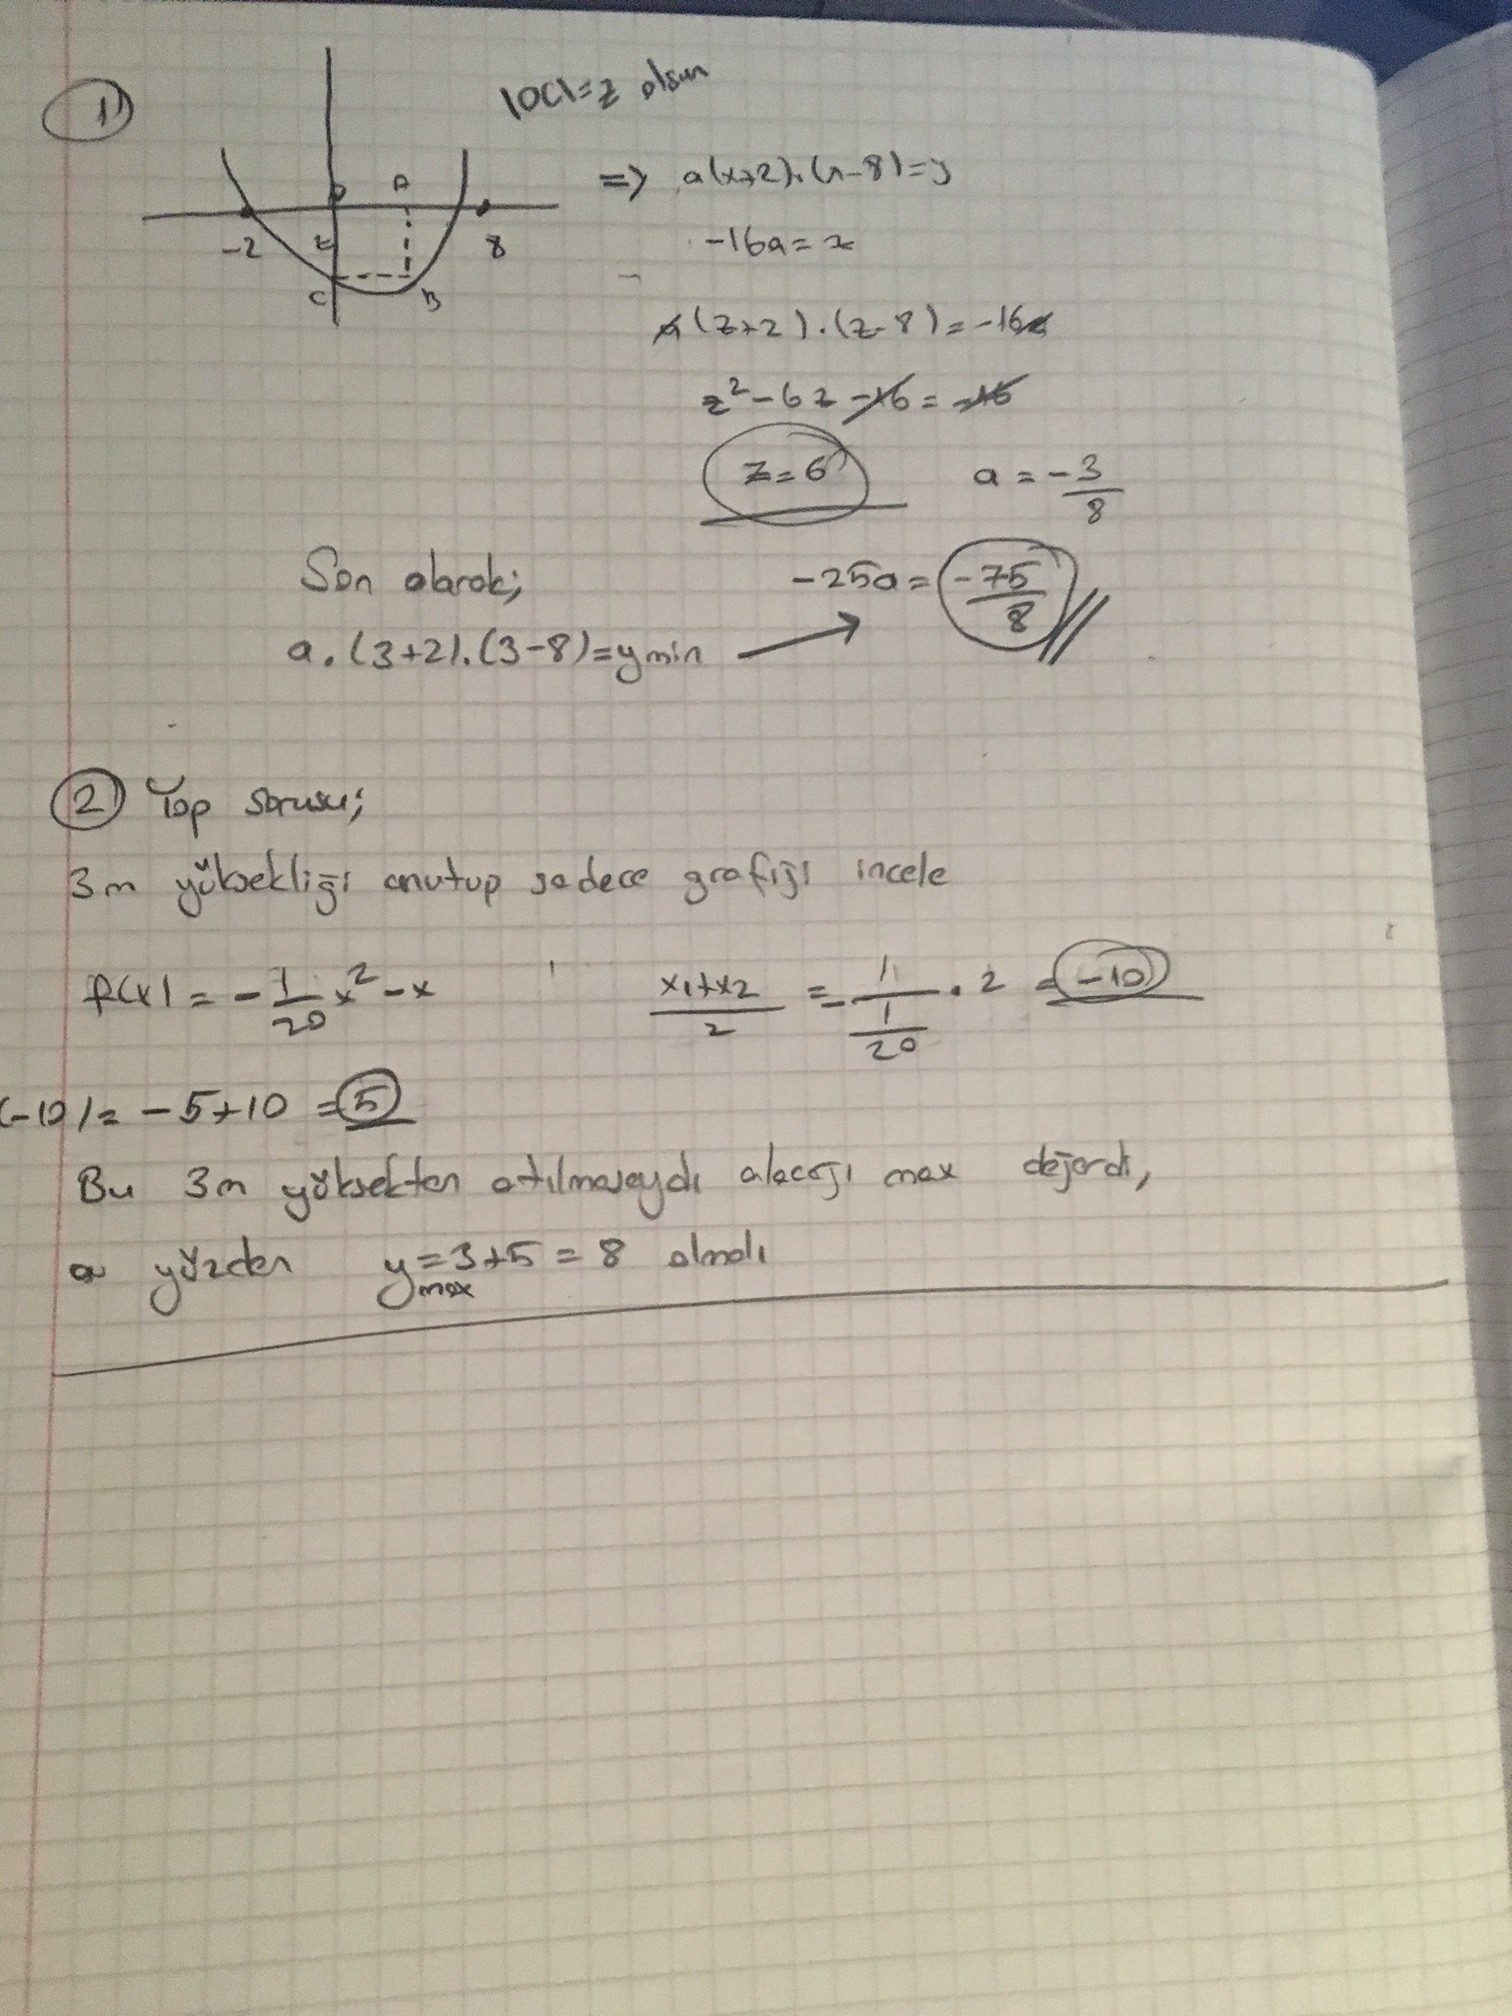 1)
|OC|=z olsun
O A
-2 z 8
C B
=> a(x+2).(x-8)=y
-16a=z
a(z+2).(z-8)=-16a
z²-6z-16=-16
z=6 a=-3/8
Son olarak; -25a=-75/8
a.(3+2).(3-8)=ymin
2) Top sorusu;
3m yüksekliği unutup sadece grafiği incele
f(x)=-1/20x²-x x₁+x₂/2 = -1/(1/20).2 = -10
(-10)=-5+10=5
Bu 3m yüksekten atılmasaydı alacağı max değerdi,
o yüzden ymax=3+5=8 olmalı